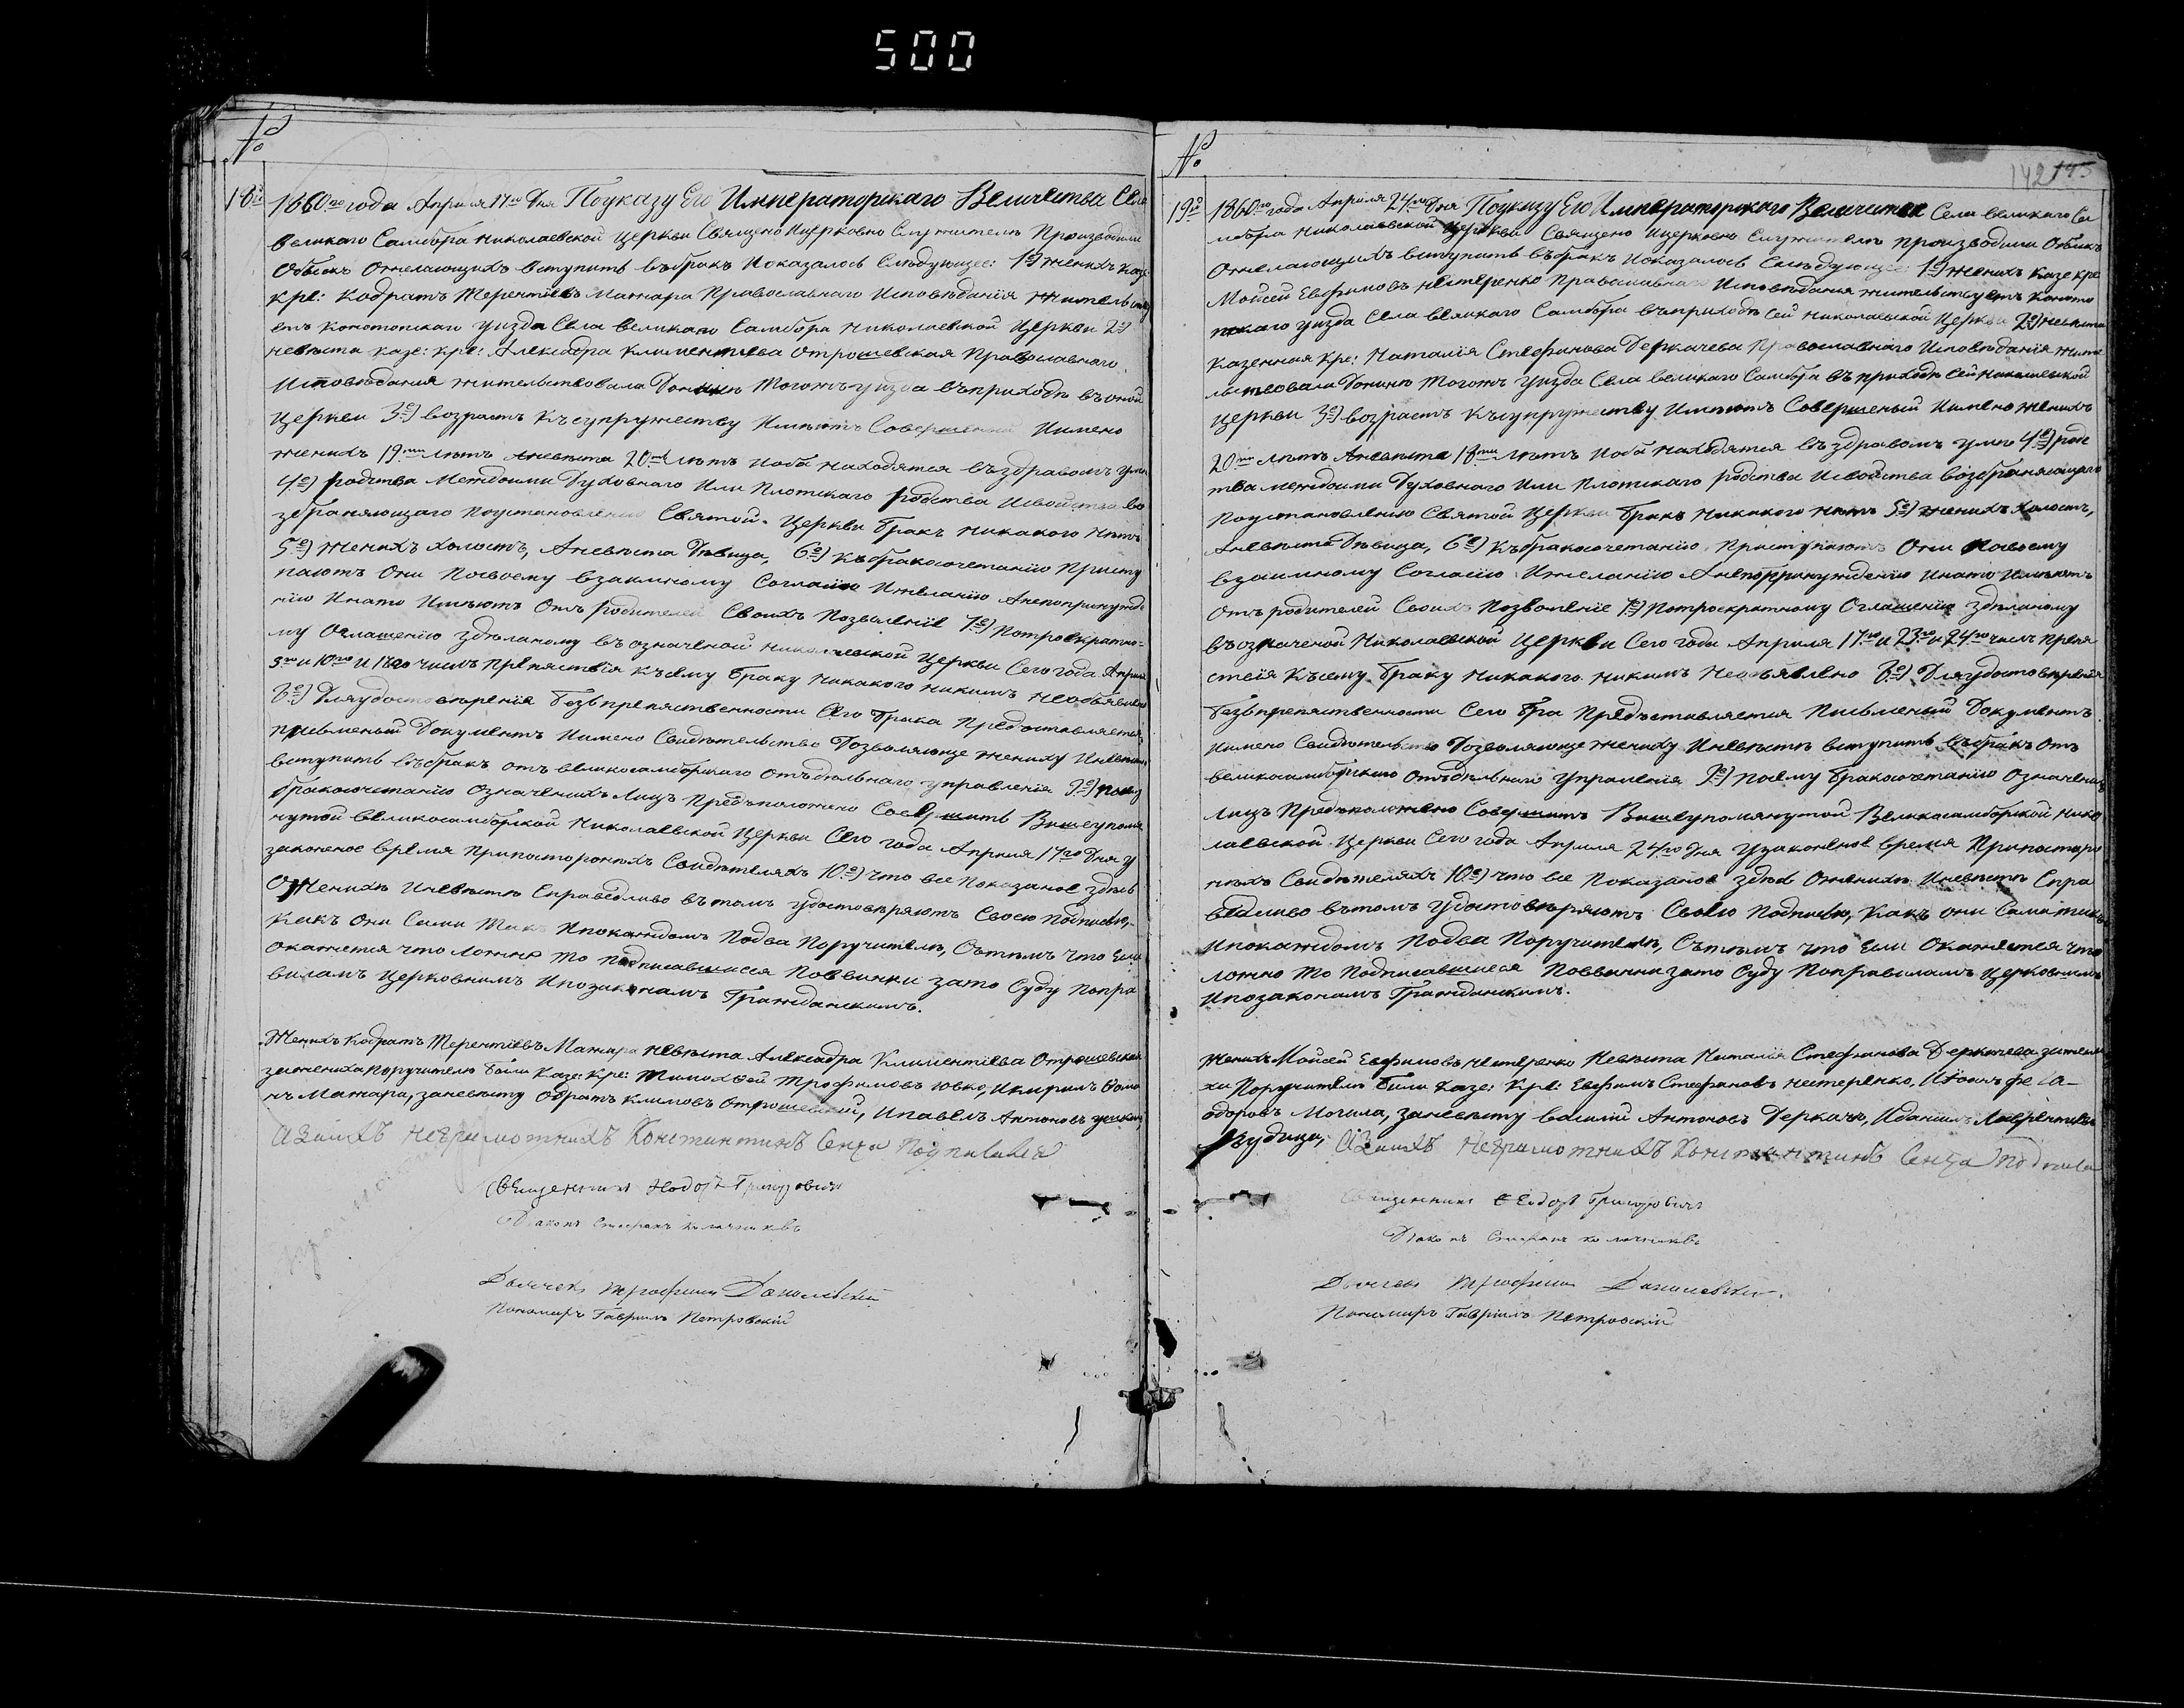 500
№
18й
1860го года Апреля 17го Дня Поуказу Его Императорскаго Величества Села
Великаго Самбора Николаевской Церкви Священо Ицерковно Служителе Производили
Обыскъ Ожелающихъ вступить въбракъ Иоказалось Слѣдующее: 1е) Женихъ казе:
кре: Кодратъ Терентіевъ Мажара Православнаго Исповѣданія Жительству
етъ Конотопскаго уизда Села Великаго Самбора Николаевской Церкви 2е)
невѣста казе: кре: Алексадра Климентіева Отрошевская Православнаго
Исповѣдания жительствовала Донинѣ Тогожъ уизда въприходѣ въоной
Церкви 3е) возрастъ Къ супружеству Имѣютъ Совершений Имено
женихъ 19ти лѣтъ Аневѣста 20ти лѣтъ Иоба находятся въздравомъ уми
4е) родства Междоими Духовнаго Или Плотскаго родства Исвойства во
зброняющаго Поустановленію Святой Церкви бракъ никакого нѣтъ
5е) Женихъ холостъ, Аневѣста Дѣвица, 6е) Къбракосочетанію Присту
паютъ Они Посвоему взаимному Согласію Ижеланію Анепопринужде
нію Инато Имѣютъ Отъ родителей Своихъ Позволеніе 7е) Потроекратно-
му Оглашению здѣланому въозначеной Николаевской Церкви Сего года Апреля
3го и 10го и 17го числъ Препяствія Къ сему браку никакого никимъ необъявлено
8е) Дляудостовѣренія безъпрепяственности Сего брака Предоставляется
писменый Документъ Имено Свидѣтельство Дозволяюще жениху Иневѣсте
вступить въбракъ отъ великосамборскаго отъдѣльнаго управленія 9е) посему
бракосочетанію означенихъ Лицъ Предъположено Совершить Вишеупомя
нутой Великосамборской Николаевской Церкви Сего года Апреля 17го Дня у
законеное время припосторонихъ Свидѣтеляхъ 10е) что все Показаное здѣсь
Оженихѣ Иневѣстѣ Справедливо вътомъ удостовѣряютъ Своею Подписью,
Какъ Они Сами Такъ Ипокаждомъ Подва Поручителя, Сътѣмъ что Если
окажется что ложно то подписавшиеся Повинни зато Суду Попра
виламъ Церковнимъ Ипозаконамъ Гражданскимъ.
Женихъ Кодратъ Терентіевъ Мажара Невѣста Алексадра Климентіева Отрошевская
зажениха Поручителе били Казе: Кре: Тимохвей Трофимовъ Ювко, Икирилъ
нъ Мажара, заневѣсту Кодратъ Климовъ Отрошевский, Ипавелъ Антоновъ
Азаихъ неграмотнихъ Константинъ Сенга Подписался
Священникъ Федотъ Григоровичъ
Діаконъ Стефанъ
Дьячекъ Трофимъ Данилевский
Пономарь Гавріилъ Петровский
№
142 145
19й
1860го года Апреля 24го Дня Поуказу Его Императорскаго Величества Села Великаго Са
мбора Николаевской Церкви Священо Ицерковно Служителе производили Обискъ
Ожелающихъ вступить въбракъ Иоказалось Слѣдующее: 1е) Женихъ Казе кре:
Мойсей Евфимовъ Нестеренко Православнаго Исповѣдания жительствуетъ Коното
пскаго уизда Села Великаго Самбора въприходѣ Сей Николаевской Церкви 2е) Невѣста
казенная кре: Наталія Стефанова Деркачева Православнаго Исповѣданія Жите
льствовала Донинѣ Тогожъ уизда Села великаго Самбора въ приходѣ Сей Николаевской
Церкви 3е) возрастъ Късупружеству Имѣютъ Совершеный Имено женихъ
20ти лѣтъ Аневѣста 18ти лѣтъ Иоба находятся въздравомъ умѣ 4е) родс
тва междоими Духовнаго Или плотскаго родства Исвойства возброняющаго
Поустановленію Святой Церкви бракъ никакого нѣтъ 5е) женихъ холостъ,
Аневѣста Дѣвица, 6е) Къбракосочетанію Приступаютъ Они Посвоему
взаимному Согласію Ижеланію Анепопринужденію Инато Имѣютъ
Отъ родителей Своихъ Позволеніе 7е) Потроекратному Оглашенію здѣланому
въозначеной Николаевской Церкви Сего года Апреля 17го и 23го и 24го числъ Препя
ствія Къ сему браку никакого никимъ Необявлено 8е) Дляудостовѣренія
безъпрепяственности Сего бра Предъставляется Письменый Документъ
Имено Свидѣтельство Дозволяюще жениху Иневѣстѣ вступить въбракъ отъ
великосамборскаго отъдѣльнаго управленія 9е) посему бракосочетанію означеныхъ
Лицъ Предъположено Совершить Вишеупомянутой Великосамборской Нико
лаевской Церкви Сего года Апреля 24го дня узаконеное время Припосторо
нѣхъ Свидѣтеляхъ 10е) что все Показаное здѣсь Оженихѣ Иневѣстѣ Спра
ведливо вътомъ удостовѣряютъ Своею Подписью, Какъ они Сами такъ
Ипокаждомъ Подва Поручителя, Сътѣмъ что Если Окажется что
ложно то подписавшиеся Повинни зато Суду Поправиламъ Церковнимъ
Ипозаконамъ Гражданскимъ.
Женихъ Мойсей Евфимовъ Нестеренко Невѣста Наталія Стефанова Деркачева зажени
ха Поручителе Били Казе: Кре: Евфимъ Стефановъ Нестеренко,
одоровъ Могила, заневѣсту Василий Антоновъ Деркачъ, Иданиилъ Лаврентіевъ
Азаихъ Неграмотнихъ Константинъ Сенга
Священникъ Федотъ Григоровичъ
Діаконъ Стефанъ
Дьячекъ Трофимъ Данилевский.
Пономарь Гавріилъ Петровский